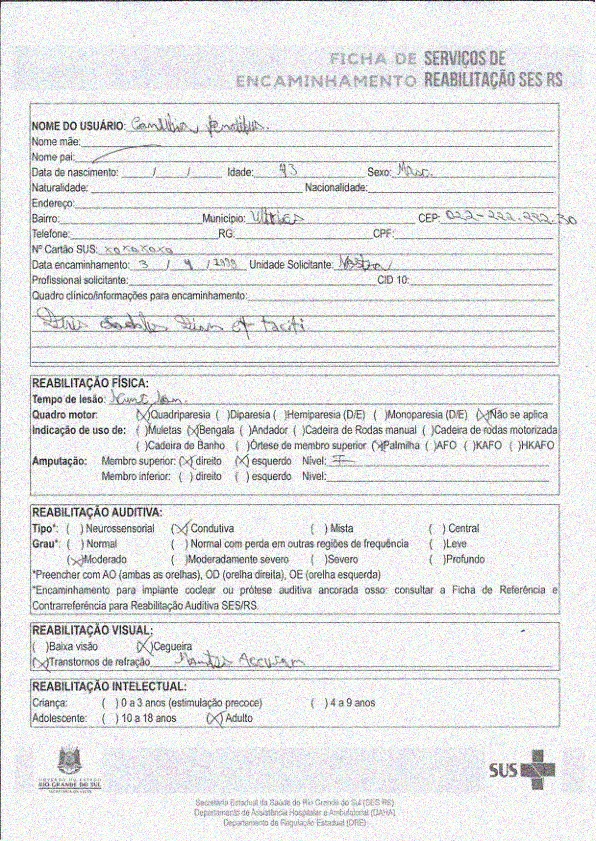 FICHA DE SERVIÇOS DE
ENCAMINHAMENTO REABILITAÇÃO SES RS
NOME DO USUÁRIO:
Nome mãe:
Nome pai:
Data de nascimento: / / Idade: 43 Sexo: Masc.
Naturalidade: Nacionalidade:
Endereço:
Bairro: Município: CEP: 022-222.292.30
Telefone: RG: CPF:
Nº Cartão SUS: xoxoxoxo
Data encaminhamento: 3 / 9 / 1999 Unidade Solicitante: Nostra
Profissional solicitante: CID 10:
Quadro clínico/informações para encaminhamento:
Duis sodales Diam et taciti
REABILITAÇÃO FÍSICA:
Tempo de lesão:
Quadro motor: (X)Quadriparesia ( )Diparesia ( )Hemiparesia (D/E) ( )Monoparesia (D/E) (X)Não se aplica
Indicação de uso de: ( )Muletas (X)Bengala ( )Andador ( )Cadeira de Rodas manual ( )Cadeira de rodas motorizada
( )Cadeira de Banho ( )Órtese de membro superior (X)Palmilha ( )AFO ( )KAFO ( )HKAFO
Amputação: Membro superior: (X) direito (X) esquerdo Nível: I
Membro inferior: ( ) direito ( ) esquerdo Nível:
REABILITAÇÃO AUDITIVA:
Tipo*: ( ) Neurossensorial (X) Condutiva ( ) Mista ( ) Central
Grau*: ( ) Normal ( ) Normal com perda em outras regiões de frequência ( )Leve
(X)Moderado ( ) Moderadamente severo ( ) Severo ( ) Profundo
*Preencher com AO (ambas as orelhas), OD (orelha direita), OE (orelha esquerda)
*Encaminhamento para implante coclear ou prótese auditiva ancorada osso: consultar a Ficha de Referência e
Contrarreferência para Reabilitação Auditiva SES/RS.
REABILITAÇÃO VISUAL:
( )Baixa visão (X)Cegueira
(X)Transtornos de refração Montes Accusan
REABILITAÇÃO INTELECTUAL:
Criança: ( ) 0 a 3 anos (estimulação precoce) ( ) 4 a 9 anos
Adolescente: ( ) 10 a 18 anos (X) Adulto
GOVERNO DO ESTADO
RIO GRANDE DO SUL
SECRETARIA DA SAÚDE
SUS
Secretaria Estadual da Saúde do Rio Grande do Sul (SES RS)
Departamento de Assistência Hospitalar e Ambulatorial (DAHA)
Departamento de Regulação Estadual (DRE)